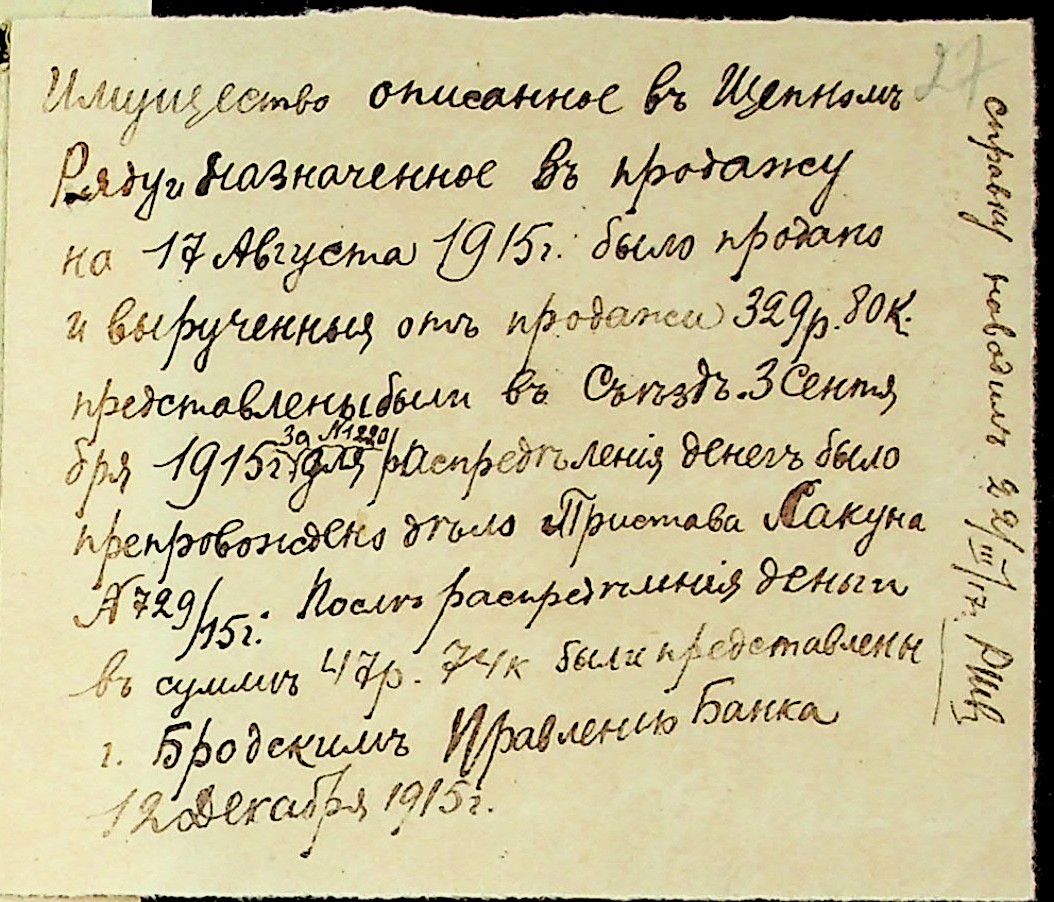 27
Имущество описанное въ Щепномъ
Ряду и назначенное въ продажу
на 17 Августа 1915г. было продано
и вырученныя отъ продажи 329р. 80к.
представлены были въ Съѣздъ. 3 Сентя
бря 1915г. за №1220 для распредѣленія денегъ было
препровождено дѣло Пристава Лакуна
№ 729/15г. Послѣ распредѣленія деньги
въ суммѣ 47р. 74к были представлены
г. Бродскимъ Правленію Банка
12 Декабря 1915г.
справку наводилъ 22/III/17г.